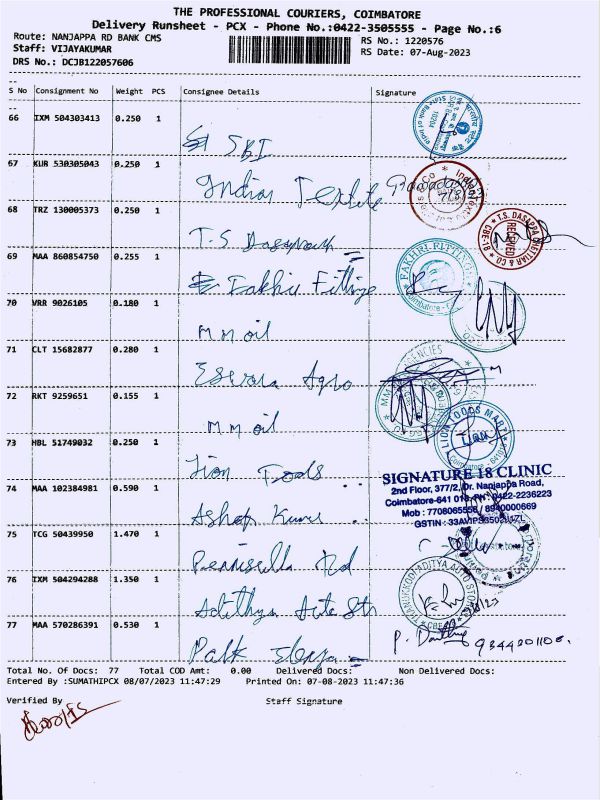 THE PROFESSIONAL COURIERS, COIMBATORE
Delivery Runsheet - PCX - Phone No.:0422-3505555 - Page No.:6
Route: NANJAPPA RD BANK CMS
RS No.: 1220576
Staff: VIJAYAKUMAR
RS Date: 07-Aug-2023
DRS No.: DCJB122057606
S No Consignment No Weight PCS Consignee Details Signature
66 IXM 504303413 0.250 1
SBI
67 KUR 530305043 0.250 1
Indian Textile
68 TRZ 130005373 0.250 1
T.S
T.S. DASAPPA CHETTIAR & CO.
RECEIVED
CBE-1
69 MAA 860854750 0.255 1
Fakhri Fitting
FAKHRI FITTING
Coimbatore
70 VRR 9026105 0.180 1
M M oil
71 CLT 15682877 0.280 1
Eswara Agro
AGENCIES
72 RKT 9259651 0.155 1
M M oil
LION FOODS MART
73 HBL 51749032 0.250 1
Lion Foods
SIGNATURE 18 CLINIC
2nd Floor, 377/2, Dr. Nanjappa Road,
Coimbatore-641 018. PH: 0422-2236223
Mob : 7708065558 / 8940000669
GSTIN : 33AVIPS3502
74 MAA 102384981 0.590 1
Ashok Kumar
75 TCG 50439950 1.470 1
Rd
76 IXM 504294288 1.350 1
Adithya Auto Str
ADITYA AUTO STORES
77 MAA 570286391 0.530 1
9344201108
Total No. Of Docs: 77 Total COD Amt: 0.00 Delivered Docs: Non Delivered Docs:
Entered By :SUMATHIPCX 08/07/2023 11:47:29 Printed On: 07-08-2023 11:47:36
Verified By Staff Signature